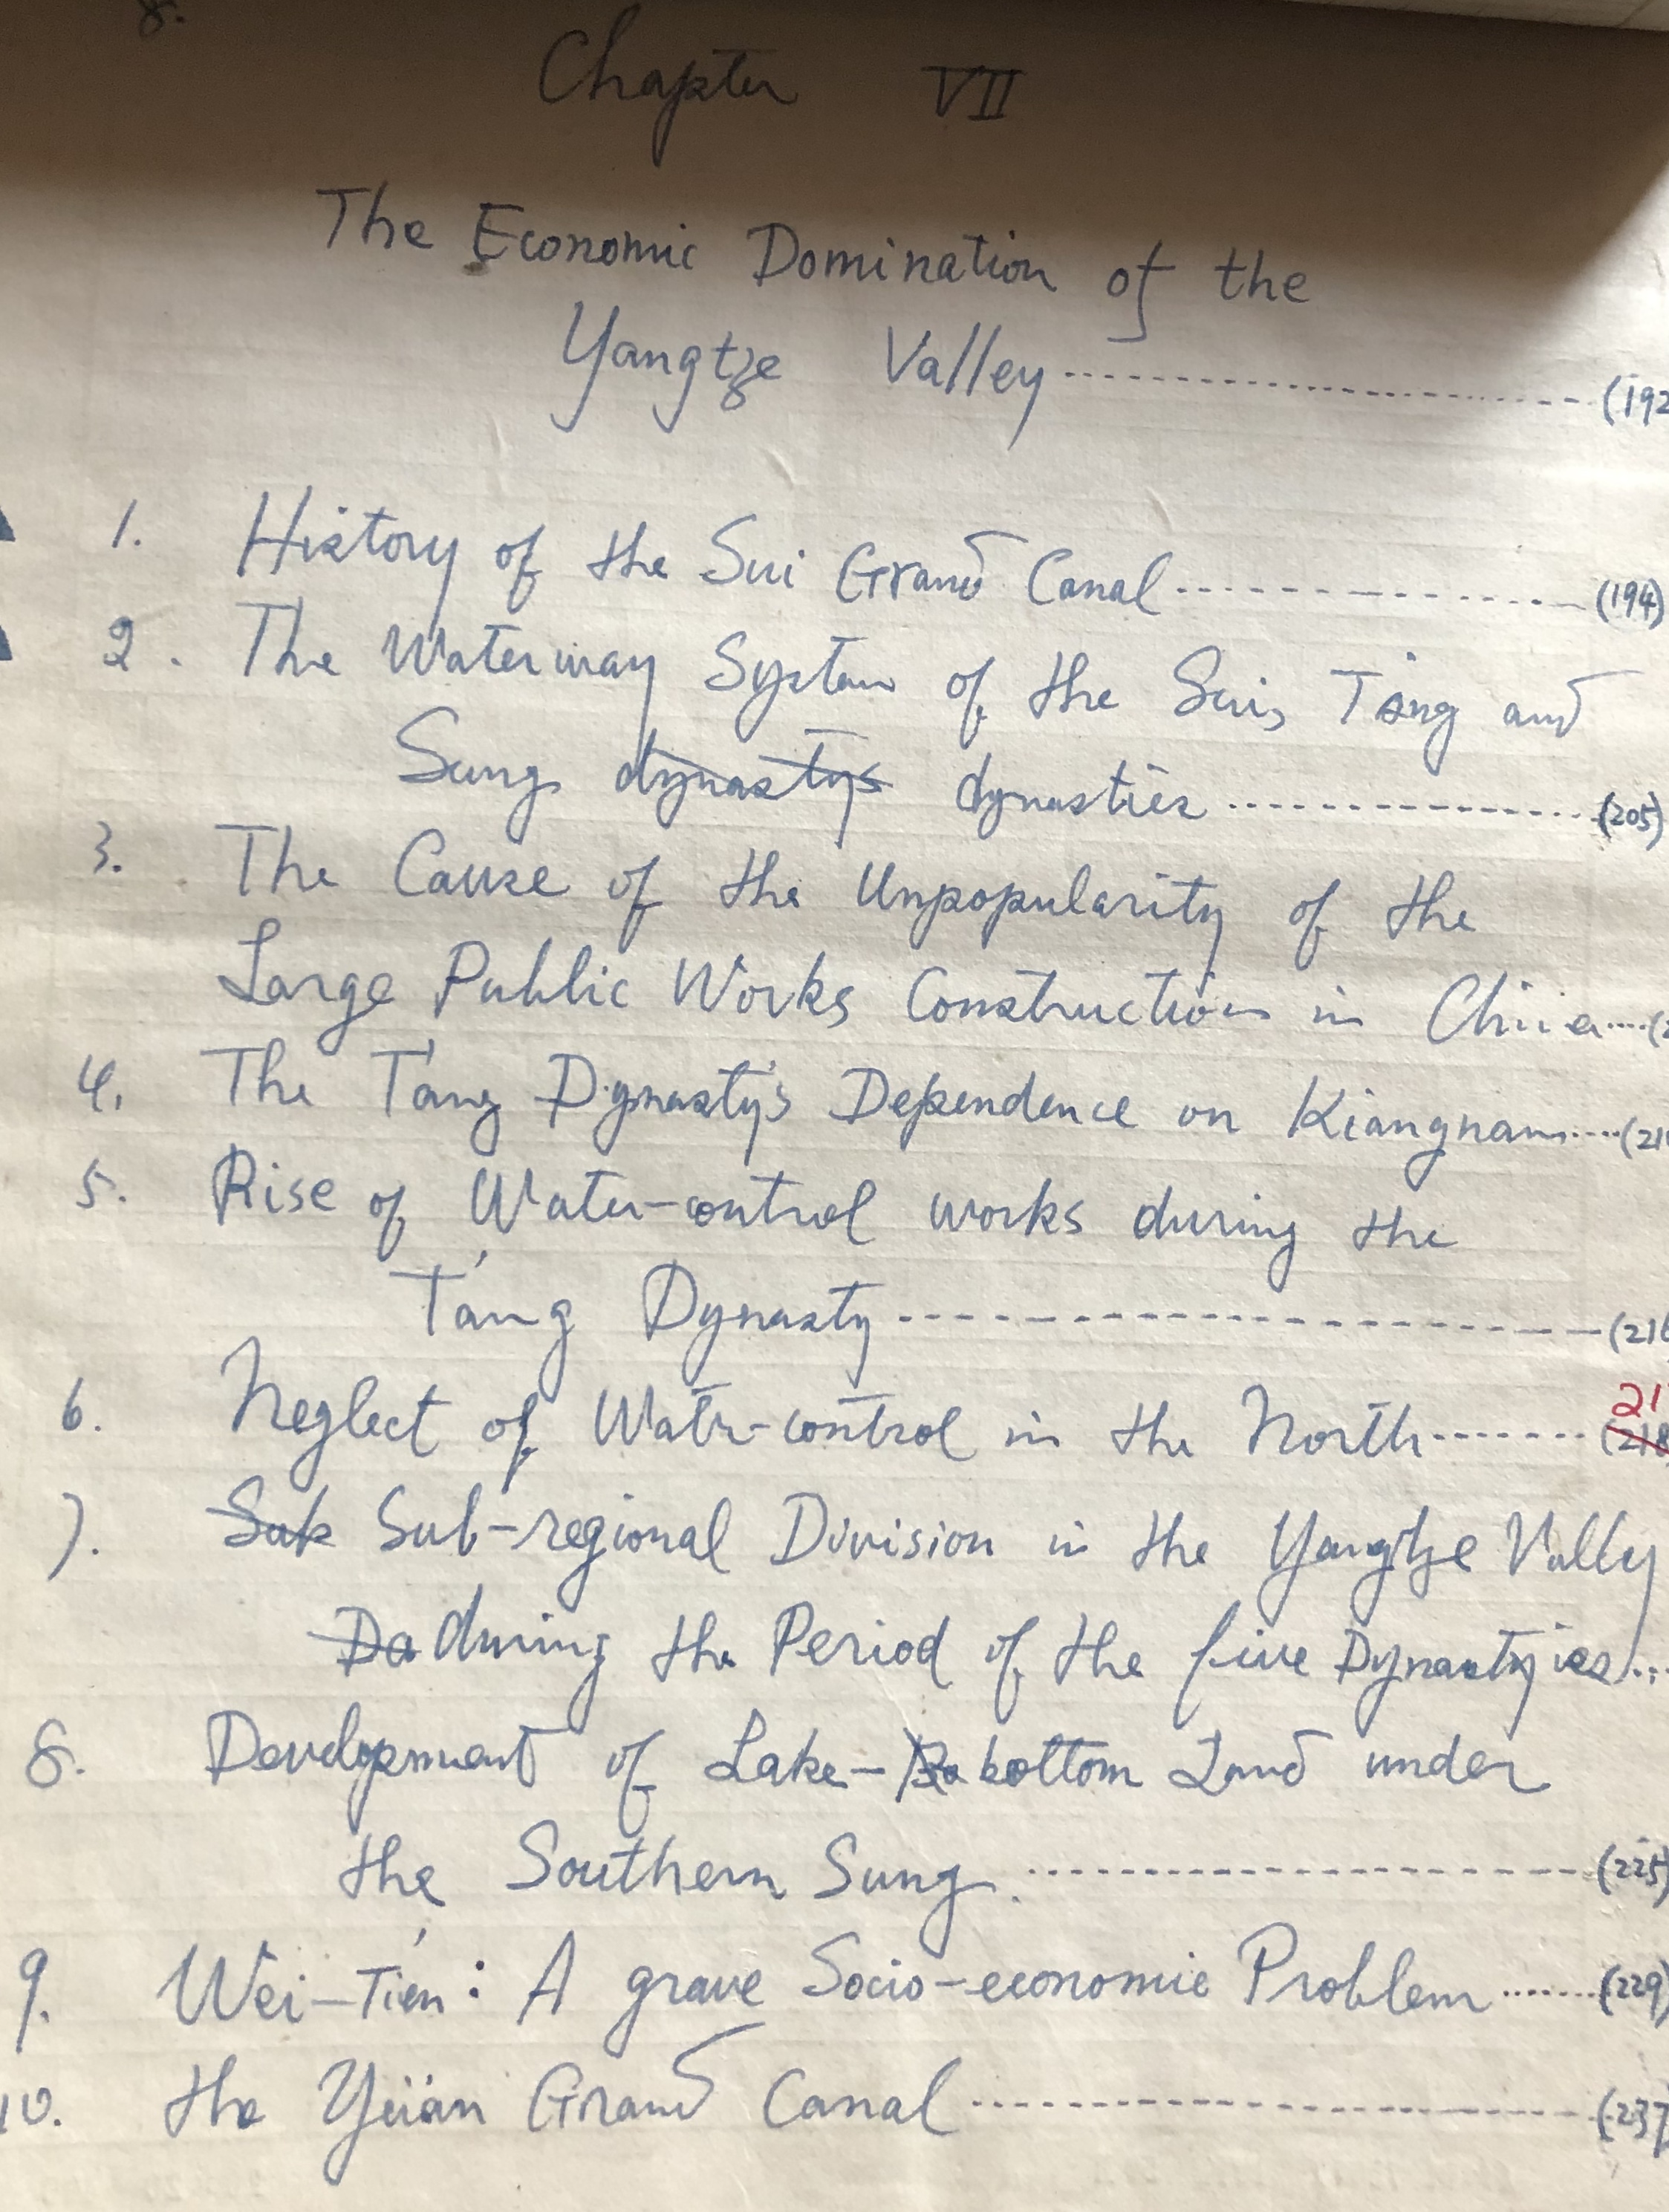 8.
Chapter VII
The Economic Domination of the
Yangtze Valley (192
1. History of the Sui Grand Canal (194)
2. The Waterway System of the Sui, T'ang and
Sung dynastys dynasties (205)
3. The Cause of the Unpopularity of the
Large Public Works Construction in China
4. The T'ang Dynasty's Dependence on Kiangnan (21
5. Rise of Water-control works during the
T'ang Dynasty (216
21
6. Neglect of Water-control in the North (218
7. Sub Sub-regional Division in the Yangtze Valley
Da during the Period of the five Dynasties
8. Development of Lake-Bo bottom Land under
the Southern Sung. (225)
9. Wei-T'ien: A grave Socio-economic Problem (229)
10. the Yüan Grand Canal (237